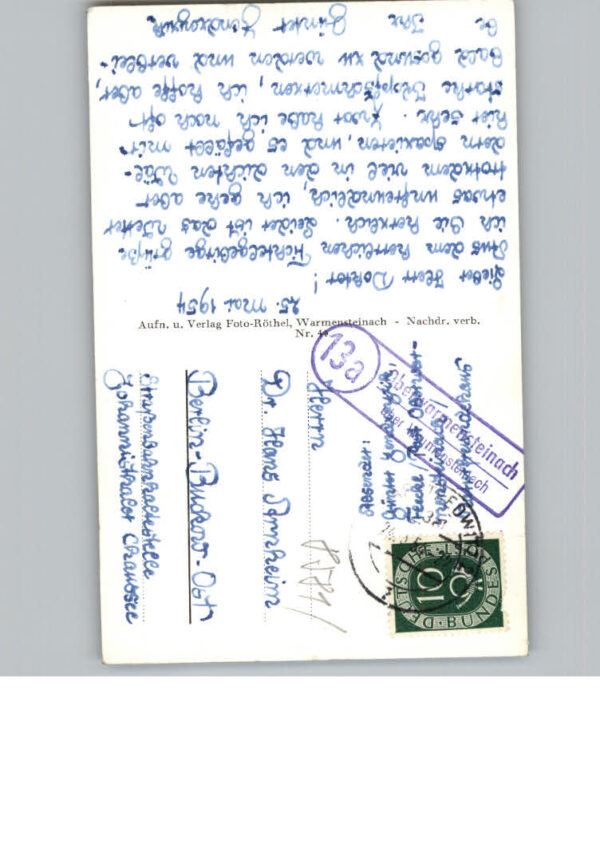 25. Mai 1954
Lieber Herr Doktor!
Aus dem herrlichen Fichtelgebirge grüße
ich Sie herzlich. Leider ist das Wetter
etwas unfreundlich, ich gehe aber
trotzdem viel in den dichten Wäl-
dern spazieren und es gefällt mir
hier sehr. Zwar habe ich noch oft
starke Kopfschmerzen, ich hoffe aber,
bald gesund zu werden und verblei-
be Ihr Günter
Aufn. u. Verlag Foto-Röthel, Warmensteinach - Nachdr. verb.
Nr.
13a
Oberwarmensteinach
über Warmensteinach
Absender:
Günter
DEUTSCHE BUNDESPOST
10
Herrn
Dr. Hans Arnheim
Berlin-Buckow-Ost
Straßenbahnhaltestelle
Johannisthaler Chaussee